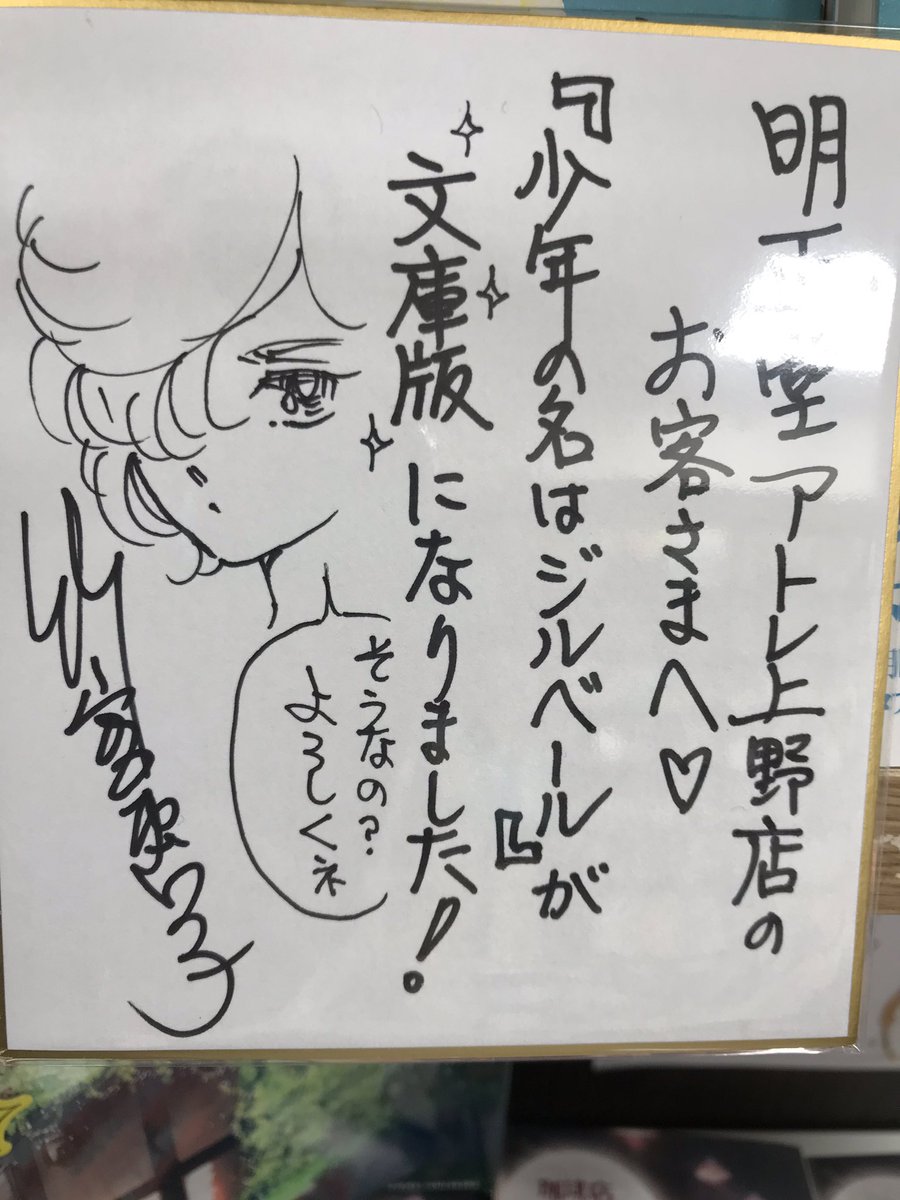 明正堂アトレ上野店の
お客さまへ♡
『少年の名はジルベール』が
文庫版になりました!
そうなの?
よろしくネ
竹宮惠子